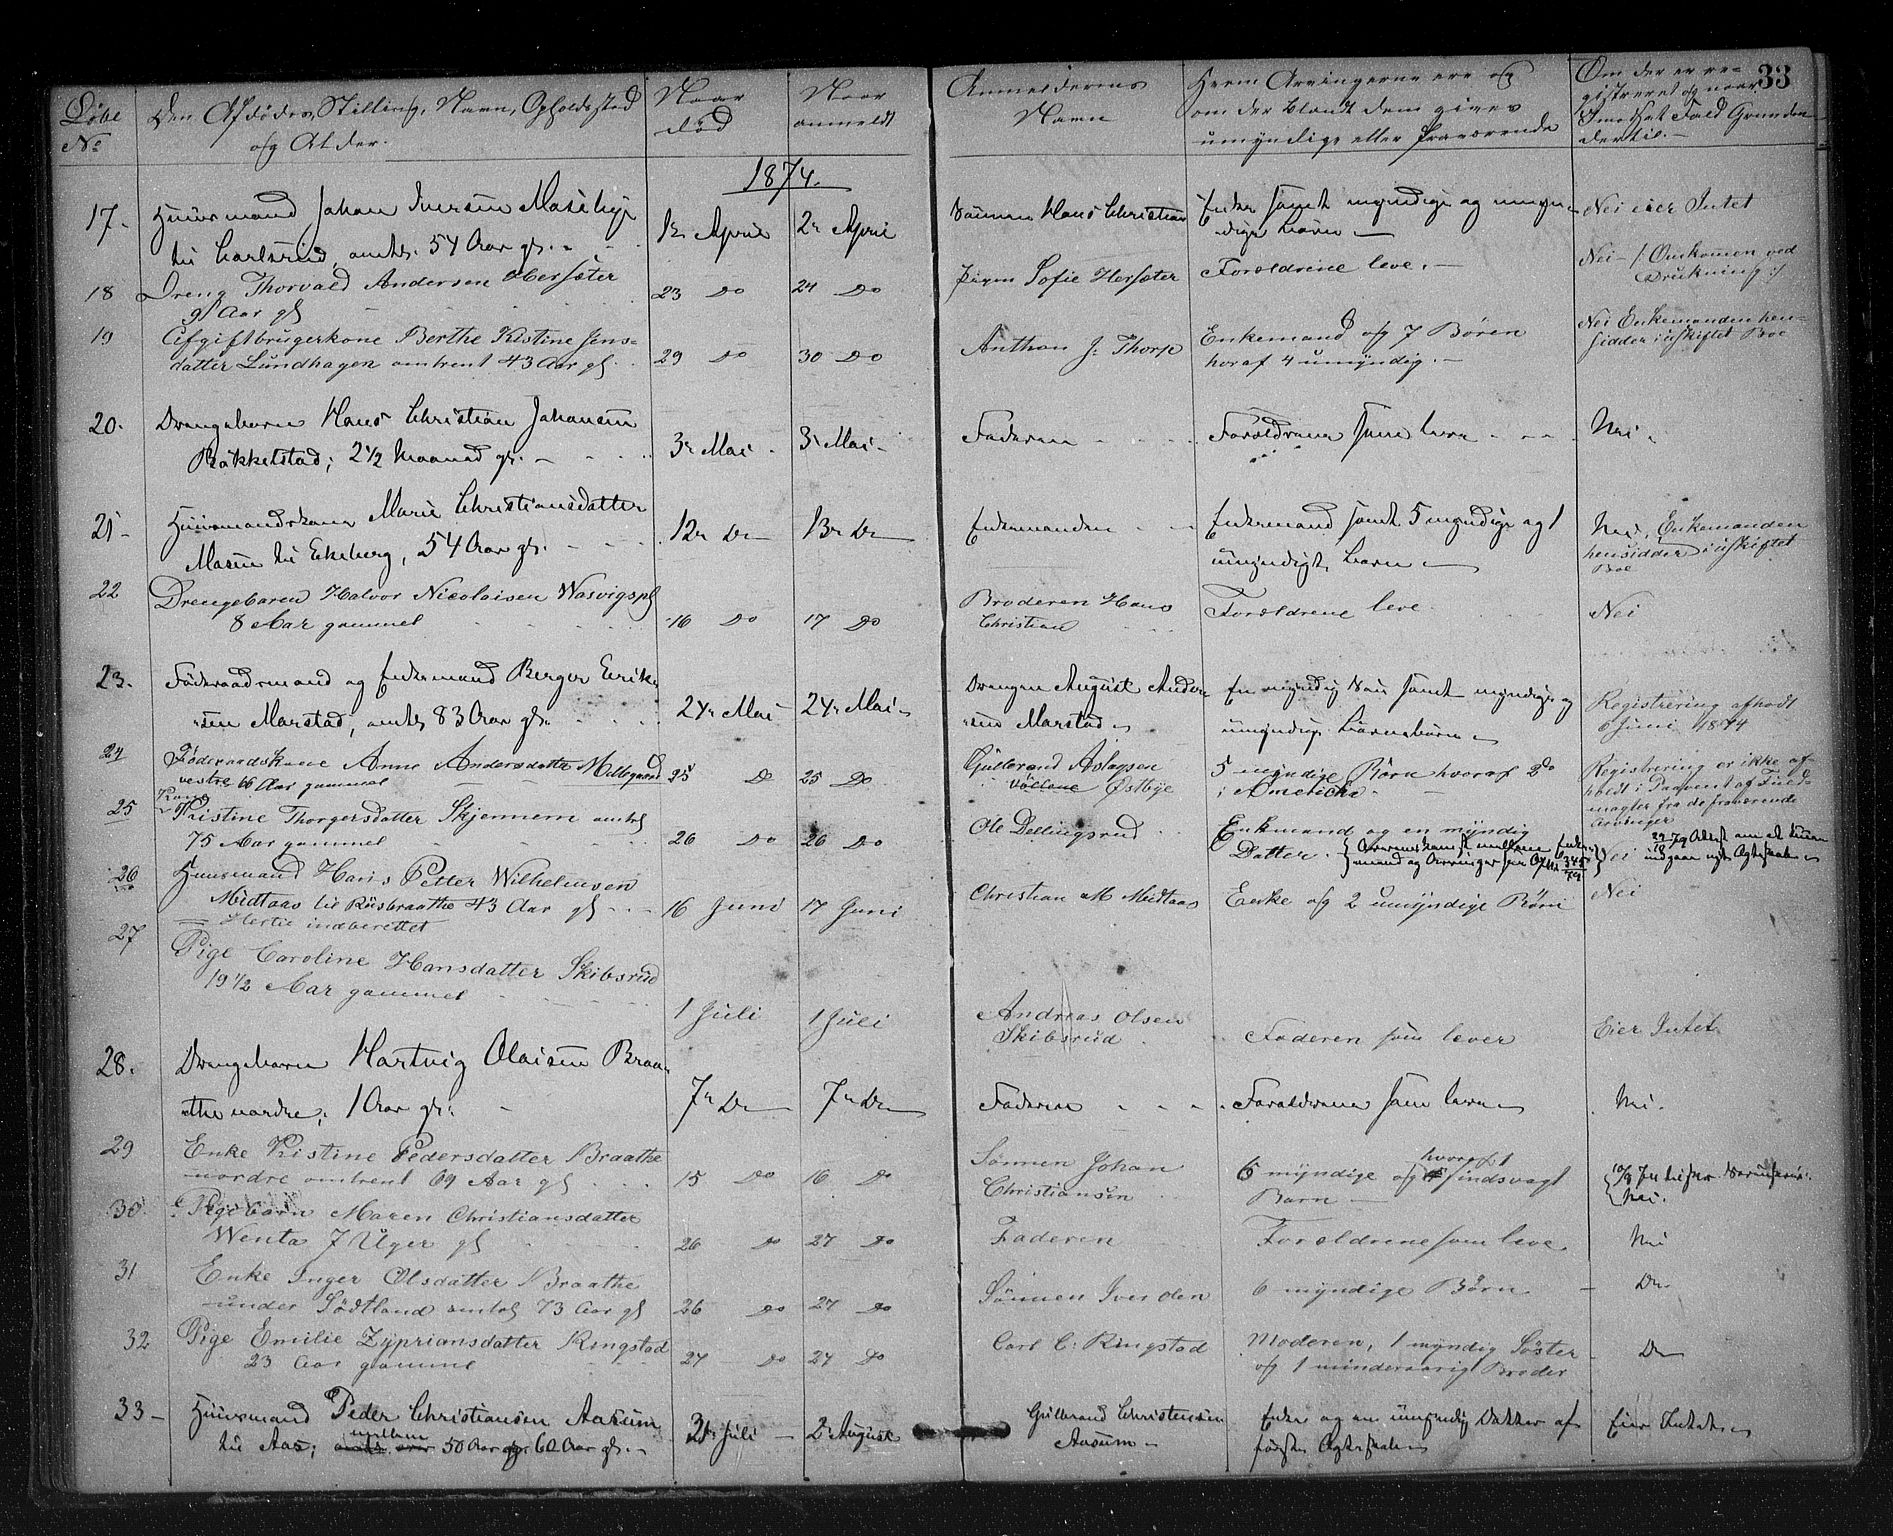 33
Løbe
No
Den Afdødes, Stilling, Navn, Opholdssted
og Alder.
Naar
død
Naar
anmeldt
Anmelderens
Navn
Hvem Arvingerne ere og
om der blandt dem gives
umyndige eller fraværende
Om der er re-
gistreret og naar
I modsat Fald Grunden
dertil.-
1874.
17. Huusmand Johan Iversen
til Carlsrud, omtr. 54 Aar gl. 12 April 2 April Sønnen Hans Christian Enke samt myndige og umyn-
dige Børn — Nei eier Intet
18 Dreng Thorvald Andersen Hersæter
9 Aar gl 23 Do 24 Do Pigen Sofie Hersæter Forældrene leve. — Nei - /: Omkommen ved
Drukning :/
19 Afgiftbrugerkone Berthe Kistine Jens-
datter Lundhagen omtrent 43 Aar gl. 29 Do 30 Do Anthon J. Thorp Enkemand og 7 Børen
horaf 4 umyndig. — Nei Enkemanden hen-
sidder i uskiftet Boe
20. Drengebarn Hans Christian Johansen
Rakkelstad; 2½ Maaned gl. — 3 Mai 3 Mai Faderen Forældrene som leve Nei.
21- Huusmandskone Marie Christiansdatter
til Ekeberg, 54 Aar gl. 12 Do 13 Do Enkemanden Enkemand samt 5 myndige og 1
umyndigt Barn — Nei, Enkemanden
hensidder i uskiftet
Boe
22 Drengebaren Halvor Nicolaisen Wasvigspl
8 Aar gammel 16 Do 17 Do Broderen Hans
Christian Forældrene leve Nei
23. Føderaadsmand og Enkemand Berger Erik-
sen Marstad, omtr 83 Aar gl. 24 Mai 24 Mai Drengen August Ander-
sen Marstad En myndig Søn samt myndige og
umyndige Børnebørn Registrering afholdt
6 Juni 1874
24 Føderaadskone Anne Andersdatter Millegaard
vestre 66 Aar gammel 25 Do 25 Do Gulbrand Aslagsen
Vøllene Østbye 5 myndige Børn hvoraf 2do
i Amerika Registrering er ikke af-
holdt i Paavent af Fuld-
magter fra de fraværende
Arvinger
25 Kone
Kristine Thorgersdatter Skjennem omtrl
75 Aar gammel 26 Do 26 Do Ole Dellingsrud Enkmand og en myndig
Datter. Overenskomst mellem Enke-
mand og Arvinger Nei
indgaa nyt Ægteskab
26 Huusmand Hans Petter Wilhelmsen
Midtaas til Riisbraathe 43 Aar gl 16 Juni 17 Juni Christian M Midtaas Enke og 2 umyndige Børn Nei
= Hertil indberettet
27 Pige Caroline Hansdatter Skibsrud
19½ Aar gammel 1 Juli 1 Juli Andreas Olsen
Skibsrud Faderen som lever Eier Intet
28. Drengebarn Hartvig Olaisen Braa-
the nordre, 1 Aar gl. 7 Do 7 Do Faderen Forældrene som leve Nei.
29 Enke Kristine Pedersdatter Braathe
nordre omtrent 69 Aar gl 15 Do 16 Do Sønnen Johan
Christiansen 6 myndige og hvoraf 1 sindsvagt
Barn — Nei.
30. Pigebarn Maren Christiansdatter
Wenta 7 Uger gl 26 Do 27 Do Faderen Forældrene som leve. Nei
31 Enke Inger Olsdatter Braathe
under Sødtland omtrl 73 Aar gl 26 Do 27 Do Sønnen Iver Olsen 6 myndige Børn Do
32 Pige Emilie Zypriansdatter Ringstad
23 Aar gammel 27 Do 27 Do Carl C. Ringstad Moderen, 1 myndig Søster
og 1 mindreaarig Broder Do
33- Huusmand Peder Christiansen Aasum
til Aas; mellem 50 Aar og 60 Aar gl. 31 Juli 2 August Gulbrand Christensen
Aasum Enke og en umyndig Datter af
første Ægteskab Eier Intet